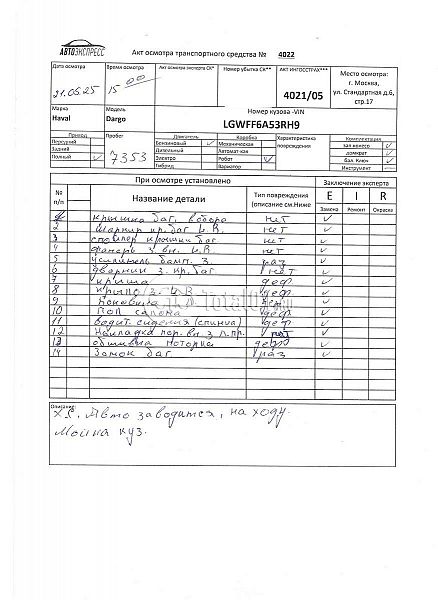 АВТОЭКСПРЕСС
Акт осмотра транспортного средства № 4022
Дата осмотра
21.06.25
Время осмотра
15 00
Акт осмотра СК*
Номер убытка СК**
АКТ ИНГОССТРАХ***
4021/05
Место осмотра:
г. Москва,
ул. Стандартная д.6,
стр.17
Марка
Haval
Модель
Dargo
Номер кузова -VIN
LGWFF6A53RH9
Привод
Передний
Задний
Полный ✓
Пробег
7353
Двигатель
Бензиновый ✓
Дизельный
Электро
Гибрид
Коробка
Механическая
Автоматная
Робот ✓
Вариатор
Характеристика повреждения
Комплектация
зап.колесо ✓
домкрат
бал. Ключ ✓
Инструмент
При осмотре установлено
Заключение эксперта
№ п/п
Название детали
Тип повреждения (описание см.Ниже
E I R
Замена Ремонт Окраска
1 крышка баг. в сборе нет ✓
2 шарнир кр. баг L.R. нет ✓
3 спойлер крышки баг. нет ✓
4 фонарь з. вн. L.R. нет ✓
5 усилитель бамп. з. раз ✓
6 дворник з. кр. баг. нет ✓
7 крыша деф ✓
8 крыло з. L.R. деф ✓
9 боковина деф ✓
10 пол салона деф ✓
11 водит. сидения (спинка) деф ✓
12 накладка пор. вн. з. п. пр. ✓
13 обшивка потолка деф ✓
14 Замок баг. раз ✓
TotalDB.ru
Описание:
Авто заводится, на ходу.
Мойка куз.